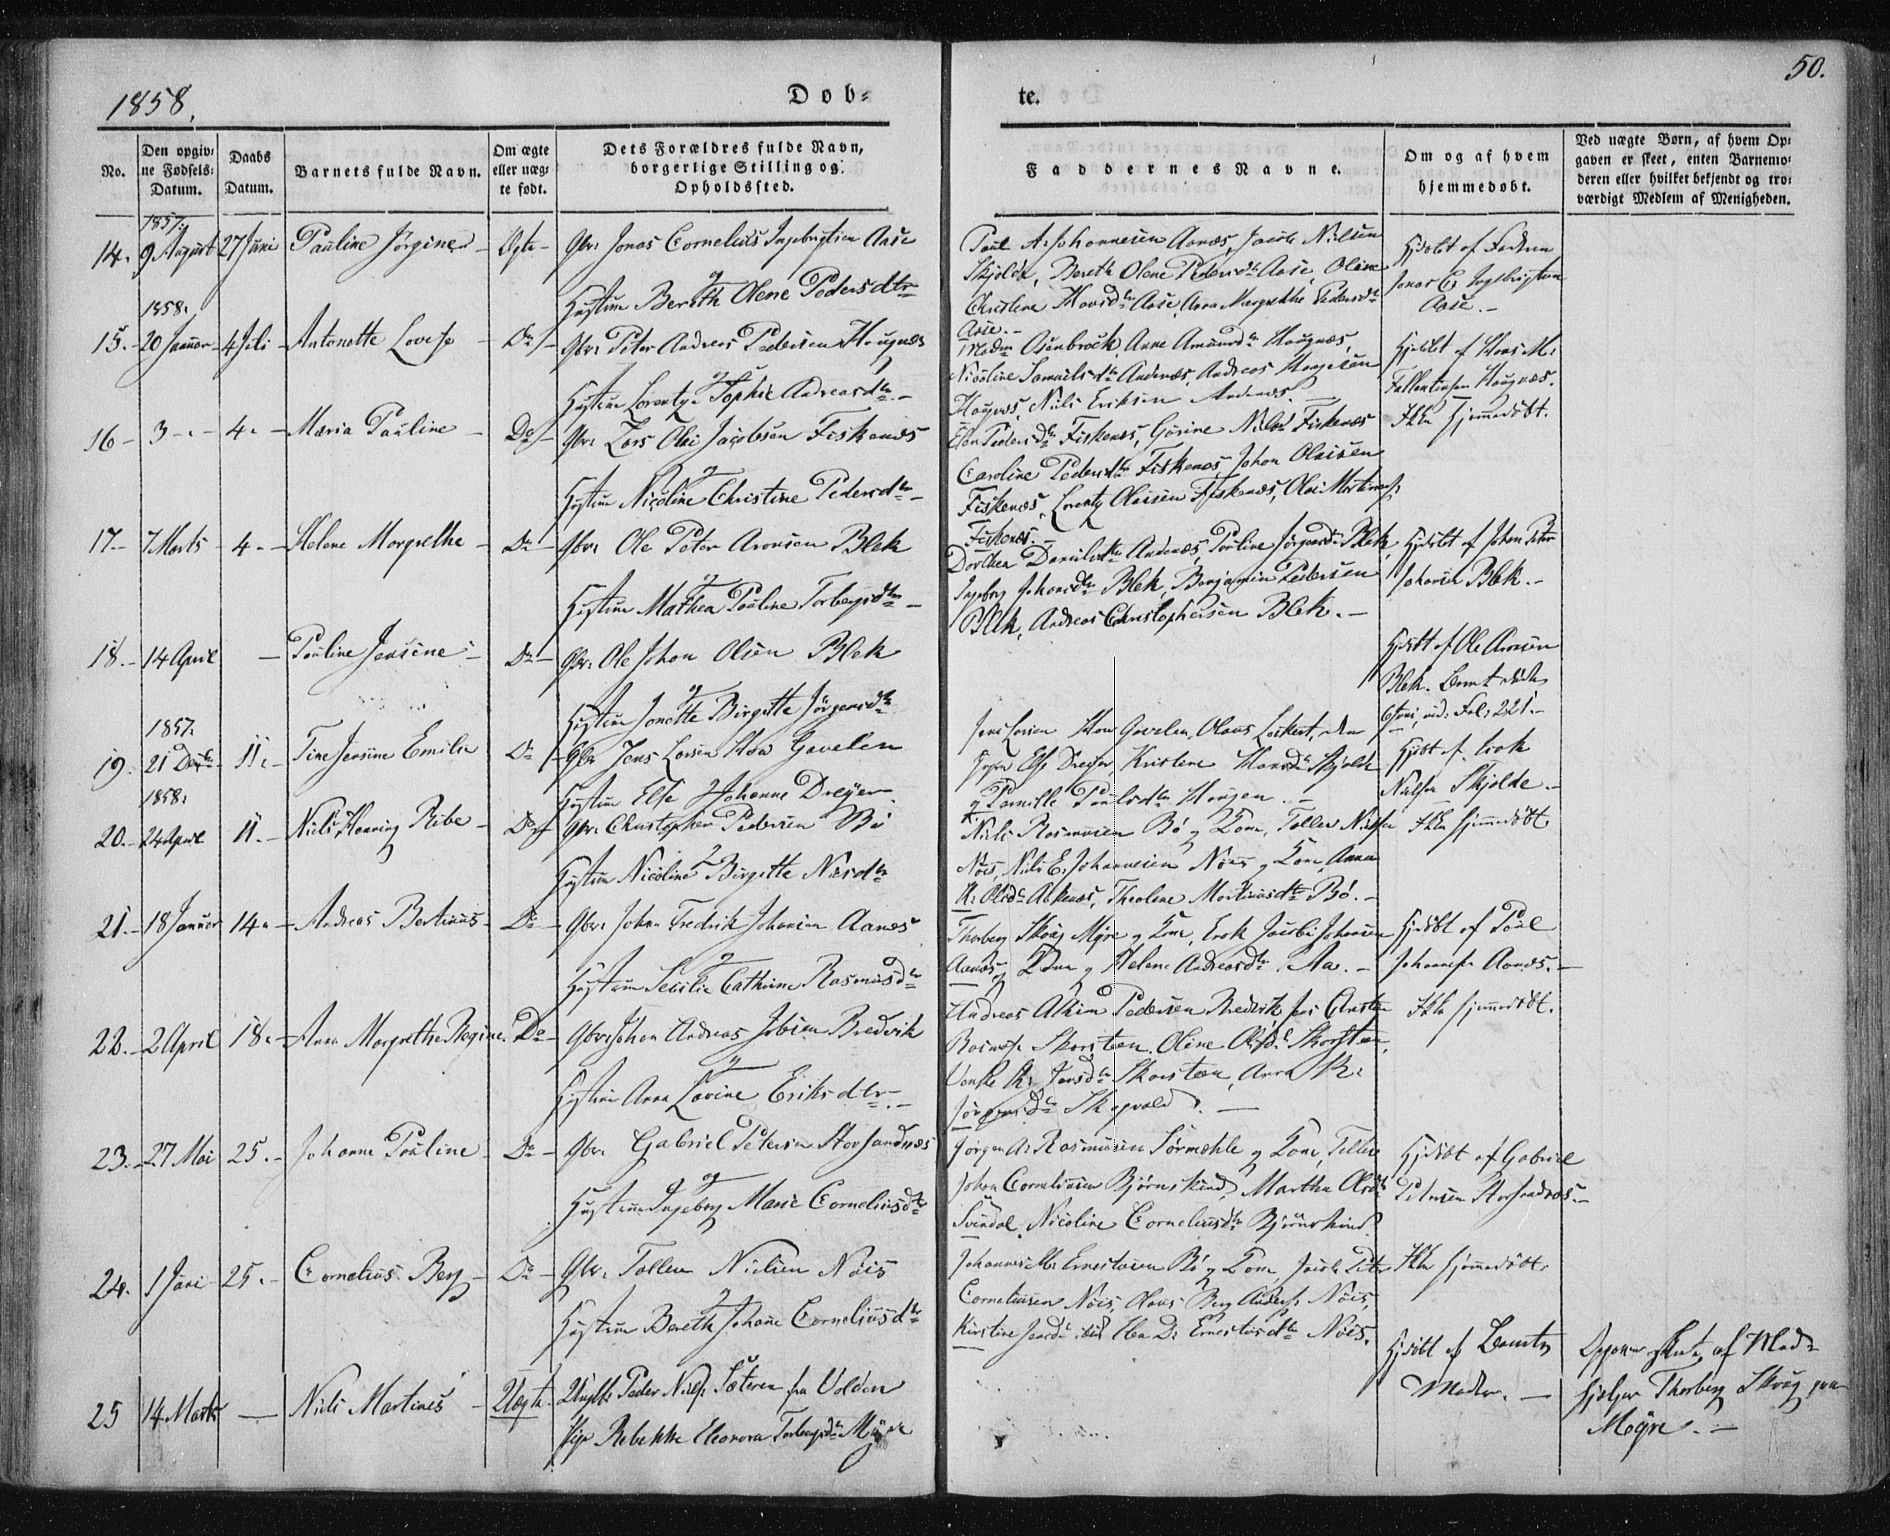 50.
1858.
Døb-
te.
No.
Den opgiv-
ne Fødsels-
Datum.
Daabs
Datum.
Barnets fulde Navn.
Om ægte
eller uæg-
te født.
Dets Forældres fulde Navn,
borgerlige Stilling og
Opholdssted.
Faddernes Navne.
Om og af hvem
hjemmedøbt.
Ved uægte Børn, af hvem Op-
gaven er skeet, enten Barnemo-
deren eller hvilket bekjendt og tro-
værdigt Medlem af Menigheden.
1857.
14. 9 August 27 Juni Pauline Jørgine Ægte Gbr. Jonas Cornelius Ingebrigtsen Aase
og
Hustru Bereth Olene Pedersdtr
Paul A. Johannesen Aanæs, Jacob Nielsen
Skjolde, Bereth Olene Pedersdtr Aase, Oline
Christine Hansdtr Aase, Anna Margrethe Pedersdtr
Aase.
Hjdøbt af Faderen
Jonas C. Ingebrigtsen
Aase.
1858.
15. 20 Januar 4 Juli Antonette Lovise Do Gbr. Peter Andreas Pedersen Haugnæs
og
Hustru Lorentze Sophie Andreasdtr
Madm Osenbrock, Anne Amundsdtr Haugnæs,
Nicoline Samuelsdtr Andenæs, Andreas
Haugnæs, Niels Eriksen Andenæs.
Hjdøbt af Hans M.
Haugnæs.
16 3 4. Maria Pauline Do Gbr. Lars Olai Jacobsen Fiskenæs
og
Hustru Nicoline Christine Pedersdtr
Elen Pedersdtr Fiskenæs, Gurine Nilsd Fiskenæs
Caroline Pedersdtr Fiskenæs, Johan Olaisen
Fiskenæs, Lorentz Olaisen Fiskenæs, Olai Martinus
Fiskenæs.
Ikke hjemmedøbt.
17. 7 Marts 4. Helene Margrethe Do Gbr. Ole Peter Aronsen Blek
og
Hustru Mathea Pauline Torbergsdtr
Dorthea Danielsdtr Andenæs, Pauline Jørgensd Blek
Ingeborg Johansdtr Blek, Benjamin Pedersen
Blek, Andreas Christophersen Blek.
Hjdøbt af Johan Peter
Johansen Blek.
18. 14 April Pauline Jensine Do Gbr. Ole Johan Olsen Blek
og
Hustru Jonette Birgitte Jørgensdtr
Hjdøbt af Ole Aronsen
Blek. Barnet døde
6 Juni, vid: Fol: 221.
1857.
19. 21 Decbr 11. Tine Jensine Emilie Do Gbr Jens Larsen Stow Gavelen
Hustru Else Johanne Dreyer
Jens Larsen Stow Gavelen, Olaus Lockert,
Jfru Else Dreyer Kristine Hansdtr Skjolde
og Pernille Paulsdtr Haugen.
Hjdøbt af Enok
Nielsen Skjolde.
1858.
20. 24 April 11. Niels Henning Ribe Do Gbr. Christopher Pedersen Bø
og
Hustru Nicoline Birgitte Nilsdtr
Niels Rasmusen Bø og Kone, Tollev Nielsen
Nøis, Niels E. Johannesen Nøis og Kone, Anna
K. Olsd Aknæs, Theoline Mortinusdtr Bø.
Ikke hjemmedøbt.
21. 18 Januar 14. Andreas Bertinus Do Gbr. Johan Fredrik Johansen Aanæs
og
Hustru Secilie Cathrine Rasmusdtr
Thorberg Skoug Myre og Kone, Enok Jacobi Johansen
Aanæs og Kone og Helene Andreasdtr Aa.
Hjdøbt af Paul
Johannesen Aanæs.
22. 2 April 18. Anna Margrethe Regine Do Gbr Johan Andreas Jobsen Bredvik
og
Hustru Anna Lovine Eriksdtr
Andreas Pedersen Bredvik,
Skorsten, Oline Olsd Skorsten,
K. Jensdtr Skorsten, Anna K.
Jørgensdtr Skogvold.
Ikke hjemmedøbt.
23. 27 Mai 25. Johanne Pauline Do Gbr. Gabriel Petersen Storsandnæs
og
Hustru Ingeborg Marie Corneliusdtr
Jørgen A. Rasmusen Sørmehle og Kone,
Johan Corneliusen Bjørnskind, Martha Olsdtr
Svindal, Nicoline Corneliusdtr Bjørnskind.
Hjdøbt af Gabriel
Petersen Storsandnæs.
24. 1 Juni 25. Cornelius Berg Do Gbr. Tollev Nielsen Nøis
og
Hustru Bereth Johane Corneliusdtr
Johannes M. Ernestusen Bø og Kone, Jacob Peter
Corneliusen Nøis, Olaus Berg Anders. Nøis,
Kirstine Jensd ibid, D. Ernestusdtr Nøis.
Ikke hjemmedøbt.
25 14 Marts Niels Martinus Uægte Ungk. Peder Niels. Sæteren fra Volden
Pige Rebekka Eleonora Torbergsdtr Myre
Hjdøbt af Barnets
Moder.
Opgaven skeet af Med-
hjelper Thorberg Skoug paa
Myre.